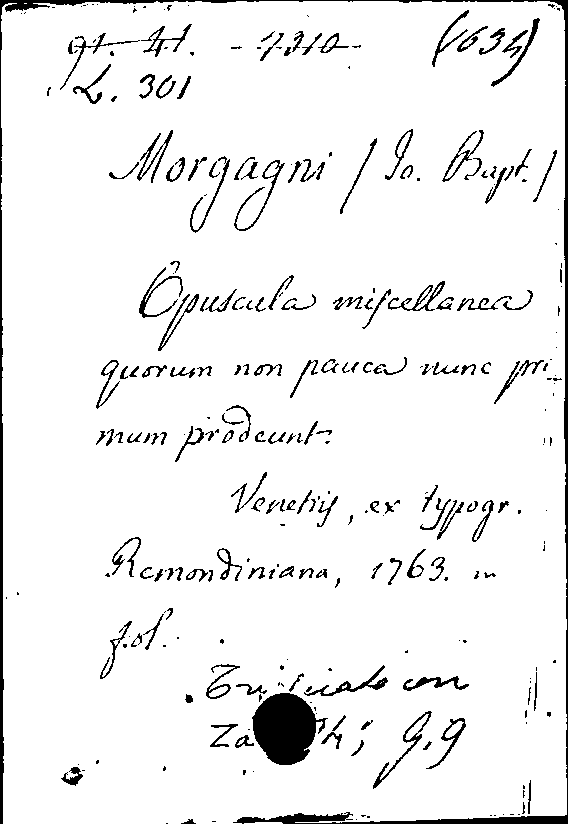 91. 41. - 7310 - (1634)
L. 301
Morgagni / Io. Bapt. /
Opuscula miscellanea
quorum non pauca nunc pri-
mum prodeunt.
Venetiis, ex typogr.
Remondiniana, 1763. in
fol.
con
G. 9